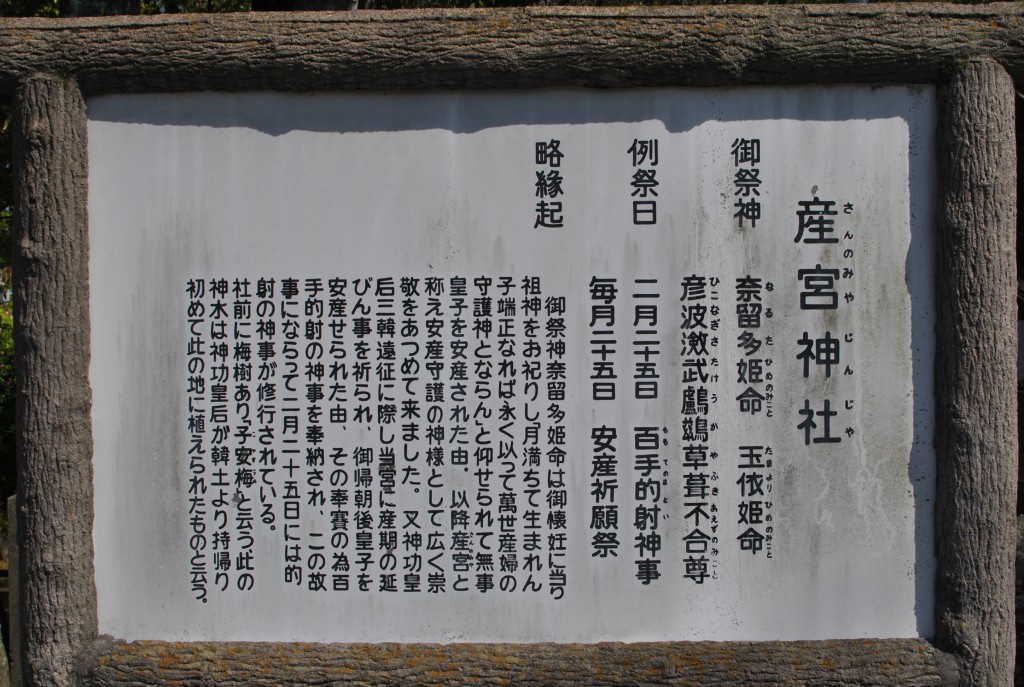 産宮神社
さんのみやじんじゃ
御祭神 奈留多姫命 玉依姫命
なるたひめのみこと たまよりひめのみこと
彦波瀲武鸕鷀草葺不合尊
ひこなぎさたけうがやふきあえずのみこと
例祭日 二月二十五日 百手的射神事
ももてのまとい
毎月二十五日 安産祈願祭
略縁起
御祭神奈留多姫命は御懐妊に当り
祖神をお祀りし「月満ちて生まれん
子端正なれば永く以って萬世産婦の
守護神とならん」と仰せられて無事
皇子を安産された由、以降産宮と
称え安産守護の神様として広く崇
敬をあつめて来ました。又神功皇
后三韓遠征に際し当宮に産期の延
びん事を祈られ、御帰朝後皇子を
安産せられた由、その奉賽の為百
手的射の神事を奉納され、この故
事にならって二月二十五日には的
射の神事が修行されている。
社前に梅樹あり「子安梅」と云う此の
神木は神功皇后が韓土より持帰り
初めて此の地に植えられたものと云う。